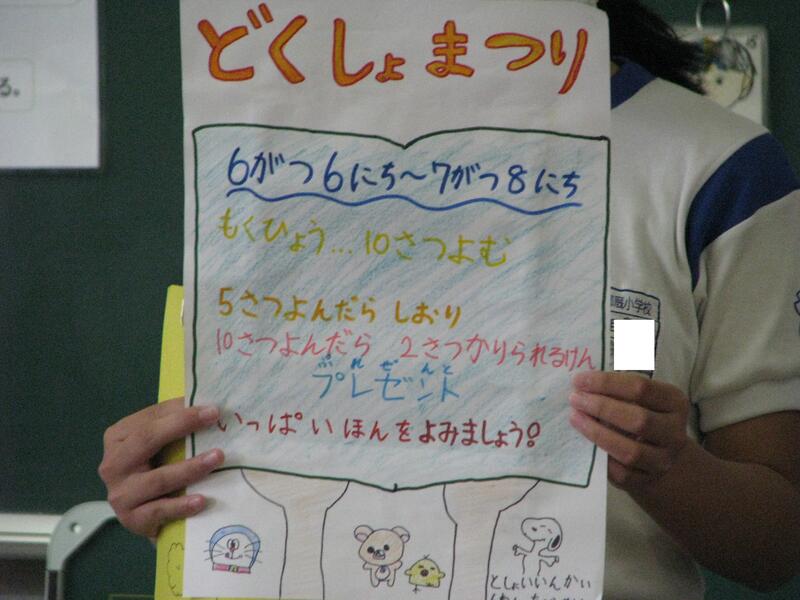 どくしょまつり
6がつ6にち～7がつ8にち
もくひょう…10さつよむ
5さつよんだら しおり
10さつよんだら 2さつかりられるけん
ぷれぜんと
プレゼント
いっぱいほんをよみましょう!
としょいいんかい
小学校
る。